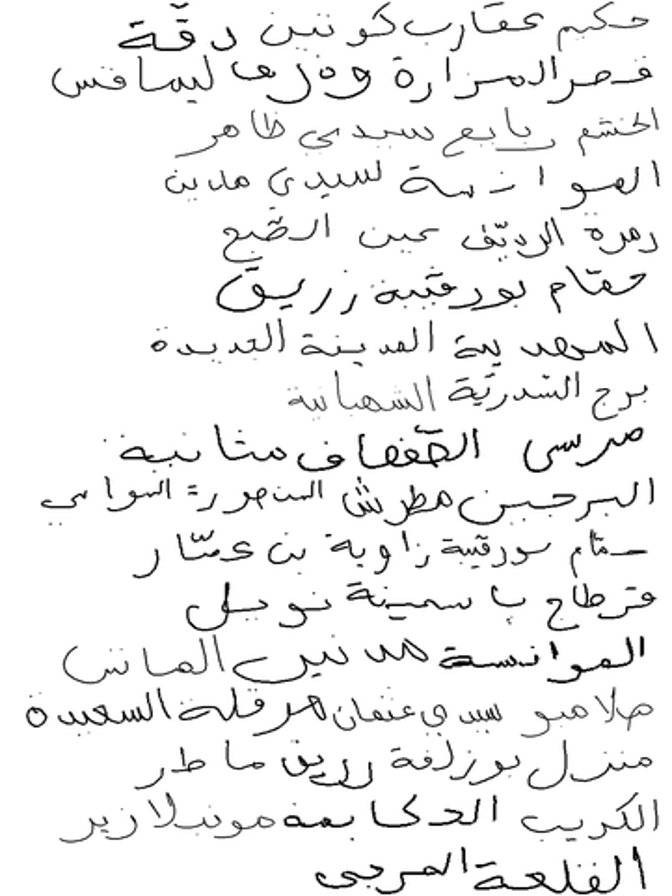 حكيم عقارب كونتين دقة
قصر المزارة وذرف ليماقس
الخشم ربايع سيدي ظاهر
الموانسة لسيدي مدين
رمرة الرديّف عين الضّبع
حمّام بورقيبة زريق
المهدية المدينة الجديدة
برج السّدريّة الشهبانية
مرسى القفصاف مثانية
البرجين مطرش المنصورة النواسي
حمّام بورقيبة زاوية بن عمّار
قرطاج ياسمينة نوبل
الموانسة مدنين الماتس
صلامبو سيدي عثمان هرقلة السعيدة
منزل بوزلفة زريق ماطر
الكريب الدكايمة موندلازير
القلعة المربى